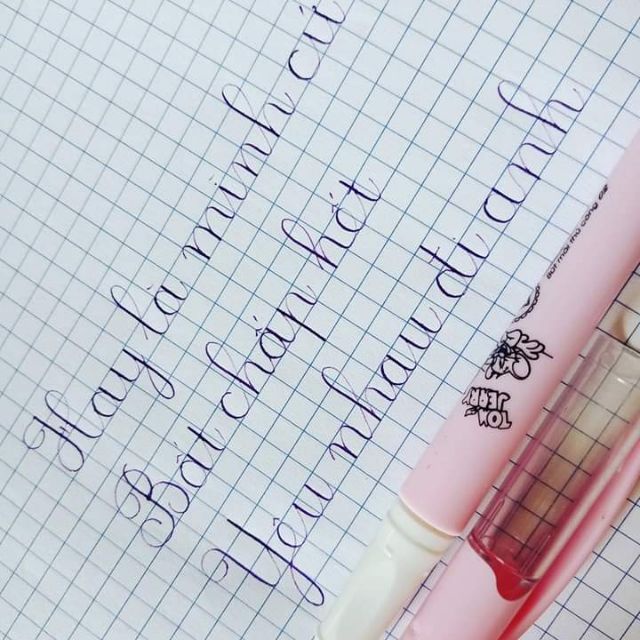 Hay là mình cứ
Bất chấp hết
Yêu nhau đi anh
TOM
JERRY